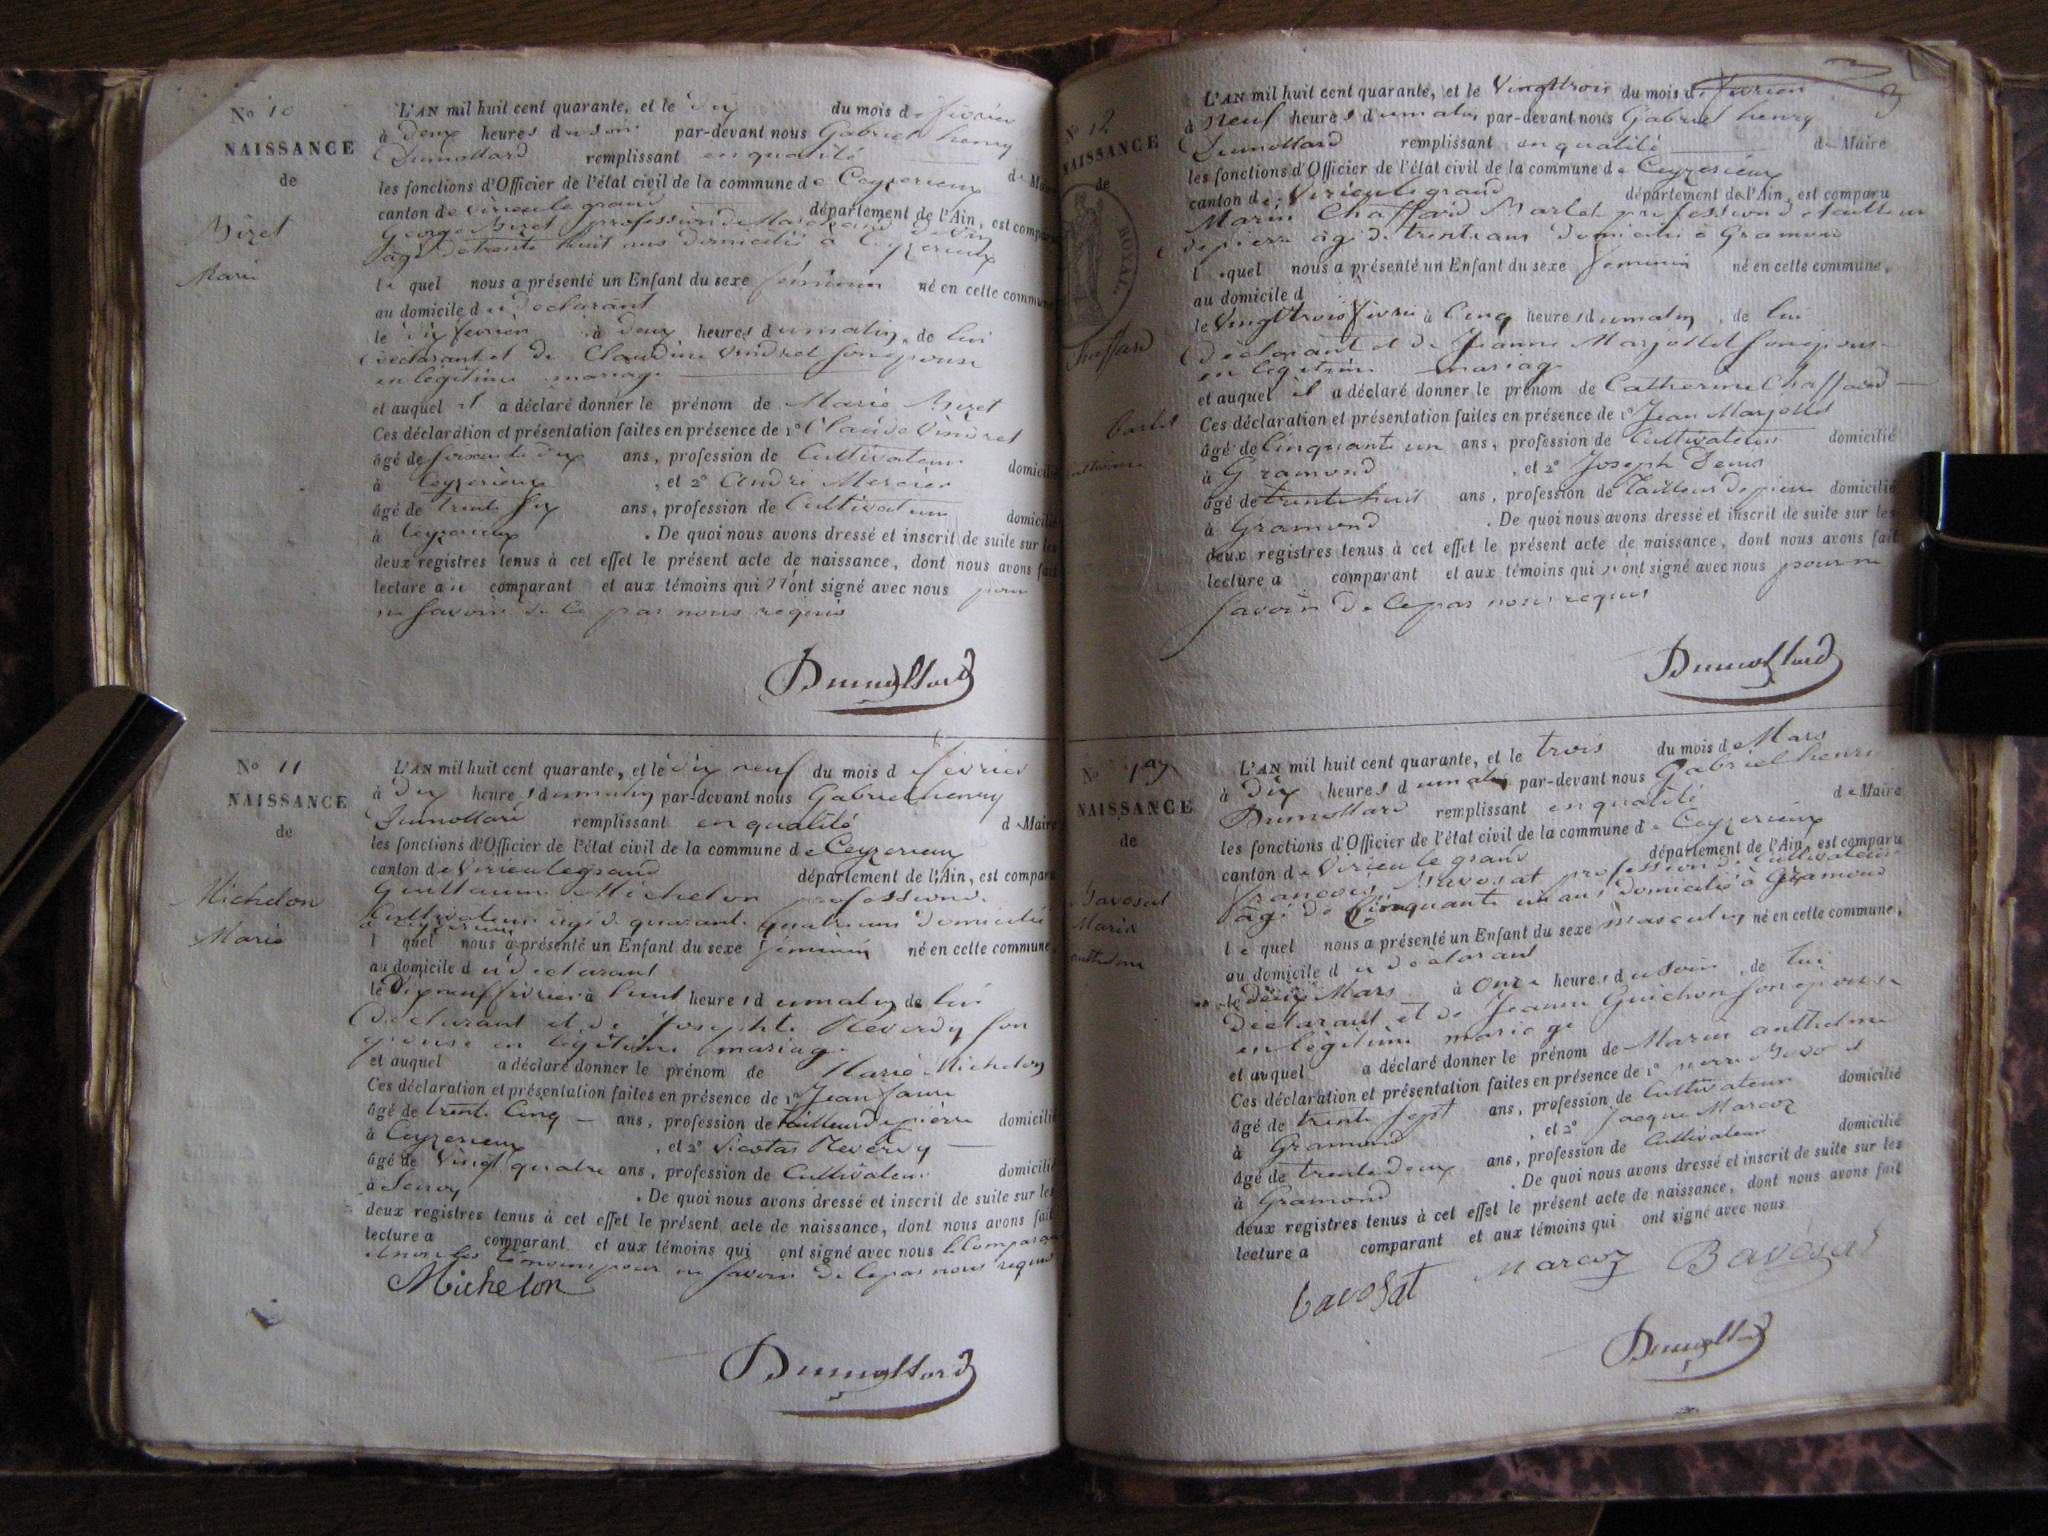 No 10
NAISSANCE
de
Bizet
Marie
L'AN mil huit cent quarante, et le dix du mois de février
à deux heures du soir par-devant nous Gabriel henry
Dumollard remplissant en qualité de Maire
les fonctions d'Officier de l'état civil de la commune de Ceyzerieux
canton de Virieu le grand département de l'Ain, est comparu
George Bizet profession de Marchand de Vin
âgé de trente huit ans domicilié à Ceyzerieux
le quel nous a présenté un Enfant du sexe féminin né en cette commune
au domicile du declarant
le dix fevrier à deux heures du matin, de lui
déclarant et de Claudine Vindret son epouse
en légitime mariage
et auquel il a déclaré donner le prénom de Marie Bizet
Ces déclaration et présentation faites en présence de 1º Claude Vindret
âgé de soixante dix ans, profession de Cultivateur domicilié
à Ceyzerieux, et 2º André Mercier
âgé de trente six ans, profession de Cultivateur domicilié
à Ceyzerieux. De quoi nous avons dressé et inscrit de suite sur les
deux registres tenus à cet effet le présent acte de naissance, dont nous avons fait
lecture au comparant et aux témoins qui n'ont signé avec nous pour
ne savoir de ce par nous requis
Dumollard
No 11
NAISSANCE
de
Michelon
Marie
L'AN mil huit cent quarante, et le dix neuf du mois d février
à dix heures du matin par-devant nous Gabriel henry
Dumollard remplissant en qualité de Maire
les fonctions d'Officier de l'état civil de la commune de Ceyzerieux
canton de Virieu le grand département de l'Ain, est comparu
Guillaume Michelon profession de
Cultivateur âgé de quarante quatre ans domicilié
à Ceyzerieux
l quel nous a présenté un Enfant du sexe féminin né en cette commune,
au domicile du declarant
le Dix neuf février à huit heures du matin de lui
declarant et de Josephte Reverdy son
epouse en légitime mariage
et auquel a déclaré donner le prénom de Marie Michelon
Ces déclaration et présentation faites en présence de 1º Jean faure
âgé de trente Cinq ans, profession de tailleur de pierre domicilié
à Ceyzerieux, et 2º Reverdy
âgé de Vingt quatre ans, profession de Cultivateur domicilié
à. De quoi nous avons dressé et inscrit de suite sur les
deux registres tenus à cet effet le présent acte de naissance, dont nous avons fait
lecture a comparant et aux témoins qui ont signé avec nous le Comparant
et non les témoins pour ne savoir de ce par nous requis
Michelon
Dumollard
No 12
NAISSANCE
de
ROYAL.
Chaffard
Barlet
L'AN mil huit cent quarante, et le Vingt trois du mois de fevrier
à Neuf heures du matin par-devant nous Gabriel henry
Dumollard remplissant en qualité de Maire
les fonctions d'Officier de l'état civil de la commune de Ceyzerieux
canton de Virieu le grand département de l'Ain, est comparu
Marin Chaffard Barlet profession de tailleur
de pierre âgé de trente ans domicilié à Gramond
l quel nous a présenté un Enfant du sexe feminin né en cette commune,
au domicile d
le Vingt trois fevrier à Cinq heures du matin, de lui
déclarant et de Jeanne Marjollet son epouse
en légitime mariage
et auquel il a déclaré donner le prénom de Catherine Chaffard
Ces déclaration et présentation faites en présence de 1º Jean Marjollet
âgé de Cinquante un ans, profession de Cultivateur domicilié
à Gramond, et 2º Joseph Denis
âgé de trente huit ans, profession de Tailleur de pierre domicilié
à Gramond. De quoi nous avons dressé et inscrit de suite sur les
deux registres tenus à cet effet le présent acte de naissance, dont nous avons fait
lecture a comparant et aux témoins qui n'ont signé avec nous pour ne
savoir de ce par nous requis
Dumollard
No
NAISSANCE
de
Bavosat
Marin
anthelme
L'AN mil huit cent quarante, et le trois du mois de Mars
à Dix heures du matin par-devant nous Gabriel henri
Dumollard remplissant en qualité de Maire
les fonctions d'Officier de l'état civil de la commune de Ceyzerieux
canton de Virieu le grand département de l'Ain, est comparu
françois Bavosat profession de Cultivateur
âgé de Cinquante un ans domicilié à Gramond
le quel nous a présenté un Enfant du sexe masculin né en cette commune,
au domicile du déclarant
le deux Mars à Onze heures du soir, de lui
déclarant et de Jeanne Guichon son epouse
en légitime mariage
et auquel a déclaré donner le prénom de Marin anthelme
Ces déclaration et présentation faites en présence de 1º pierre Bavosat
âgé de trente sept ans, profession de Cultivateur domicilié
à Gramond, et 2º Jacque Marcoz
âgé de trente deux ans, profession de Cultivateur domicilié
à Gramond. De quoi nous avons dressé et inscrit de suite sur les
deux registres tenus à cet effet le présent acte de naissance, dont nous avons fait
lecture a comparant et aux témoins qui ont signé avec nous
bavosat Marcoz Bavosat
Dumollard